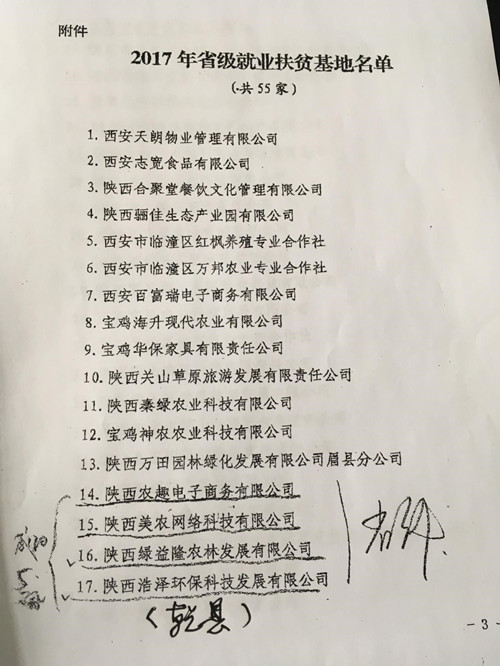 附件
2017年省级就业扶贫基地名单
(共55家)
1. 西安天朗物业管理有限公司
2. 西安志宽食品有限公司
3. 陕西合聚堂餐饮文化管理有限公司
4. 陕西骊佳生态产业园有限公司
5. 西安市临潼区红枫养殖专业合作社
6. 西安市临潼区万邦农业专业合作社
7. 西安百富瑞电子商务有限公司
8. 宝鸡海升现代农业有限公司
9. 宝鸡华保家具有限责任公司
10. 陕西关山草原旅游发展有限责任公司
11. 陕西秦绿农业科技有限公司
12. 宝鸡神农农业科技有限公司
13. 陕西万田园林绿化发展有限公司眉县分公司
14. 陕西农趣电子商务有限公司
15. 陕西美农网络科技有限公司
16. 陕西绿益隆农林发展有限公司
17. 陕西浩泽环保科技发展有限公司
(乾县)
- 3 -